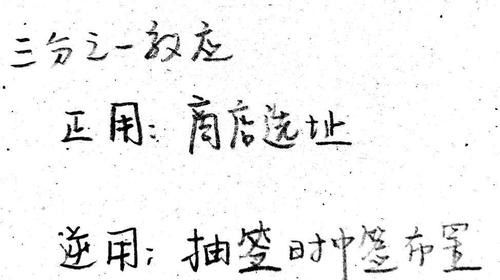 三分之一效应
正用：商店选址
逆用：抽签时中签布置